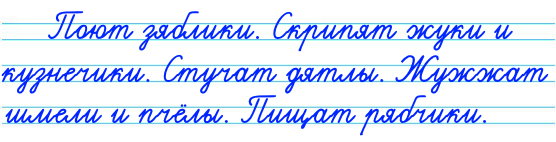 Поют зяблики. Скрипят жуки и
кузнечики. Стучат дятлы. Жужжат
шмели и пчёлы. Пищат рябчики.